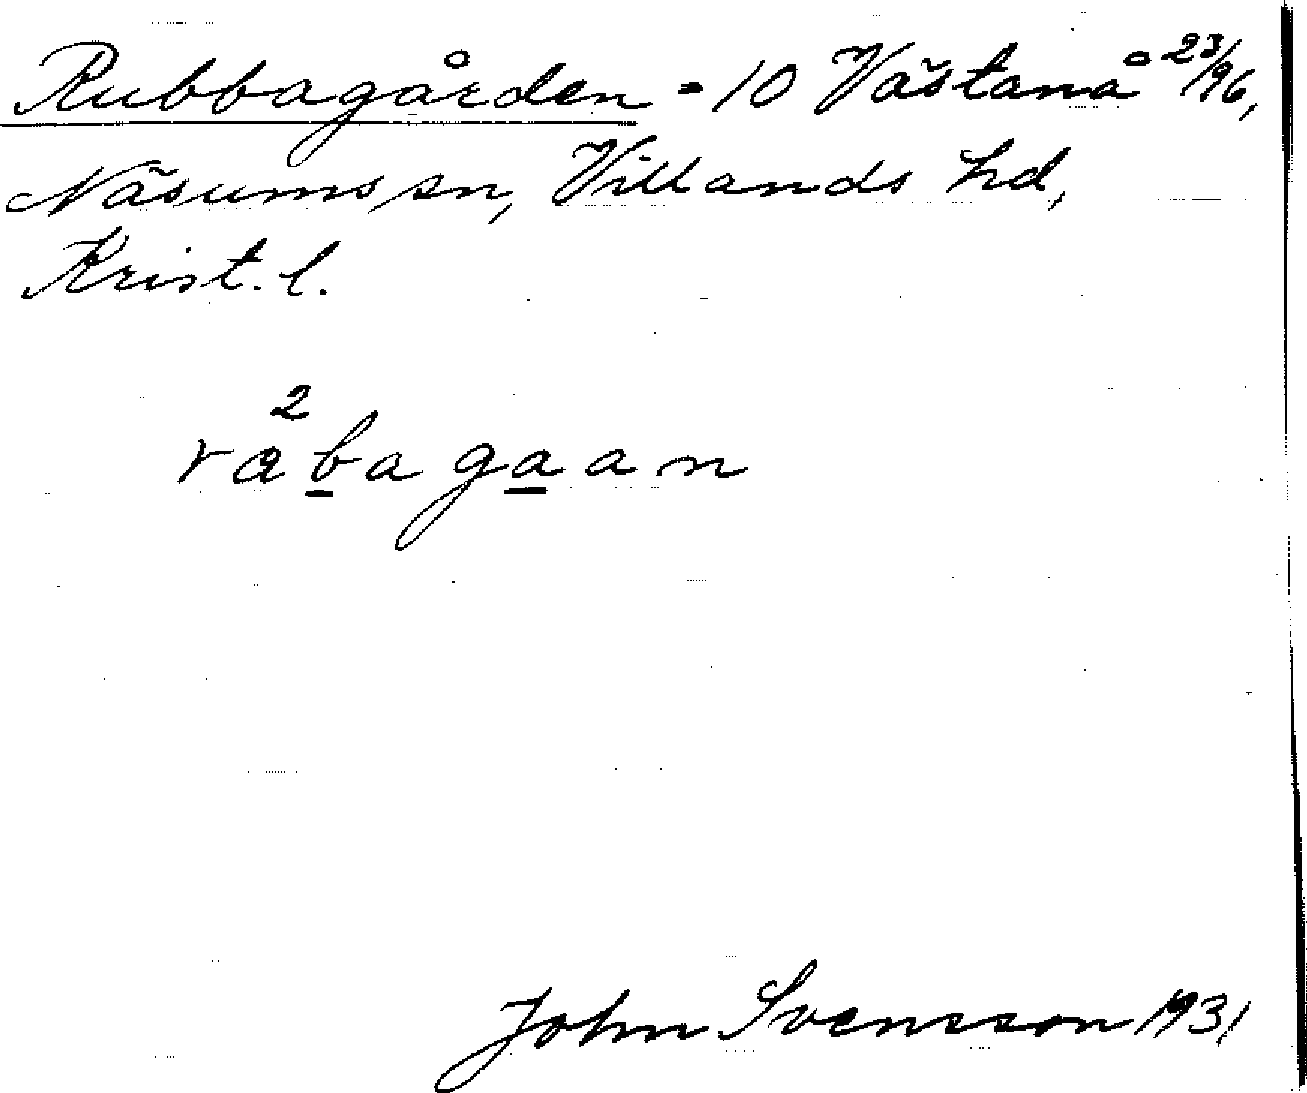 Rubbagården = 10 Västanå 23/96,
Näsums sn, Villands hd,
Krist. l.
råbagaan
2
John Svensson 1931